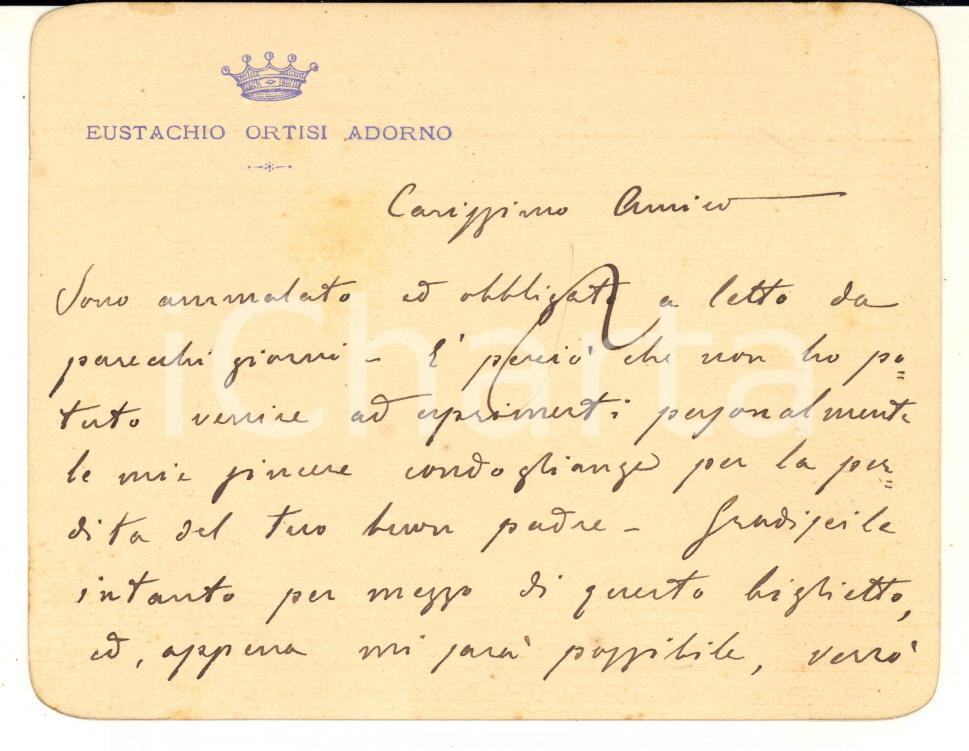 EUSTACHIO ORTISI ADORNO
Carissimo Amico
Sono ammalato ed obbligato a letto da
parecchi giorni - E' perciò che non ho po=
tuto venire ad esprimerti personalmente
le mie sincere condoglianze per la per=
dita del tuo buon padre - Gradiscile
intanto per mezzo di questo biglietto,
ed, appena mi sarà possibile, verrò
iCharta